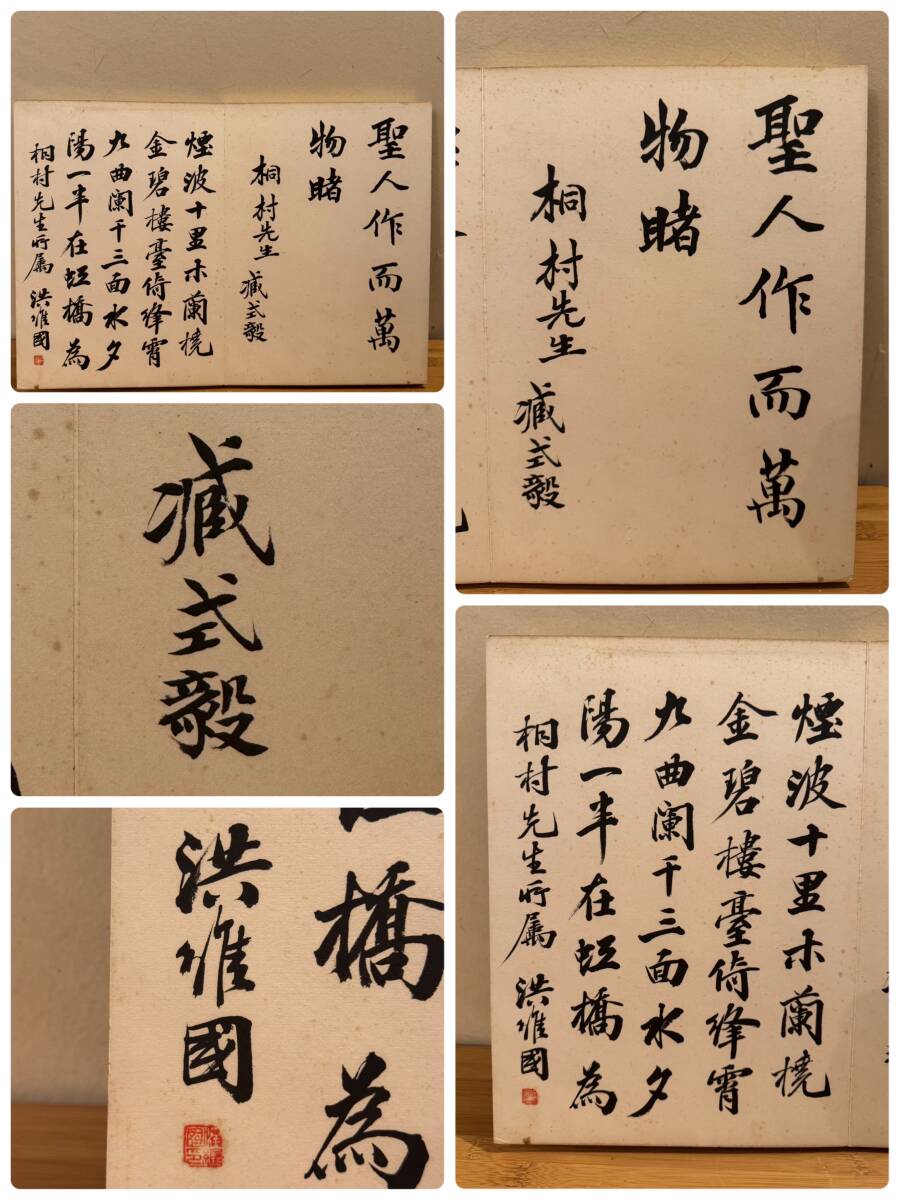 聖人作而萬
物睹
桐村先生 臧式毅
煙波十里木蘭橈
金碧樓臺倚絳霄
九曲闌干三面水夕
陽一半在虹橋 為
桐村先生所属 洪維國
聖人作而萬
物睹
桐村先生 臧式毅
臧式毅
橋 為
洪維國
煙波十里木蘭橈
金碧樓臺倚絳霄
九曲闌干三面水夕
陽一半在虹橋 為
桐村先生所属 洪維國